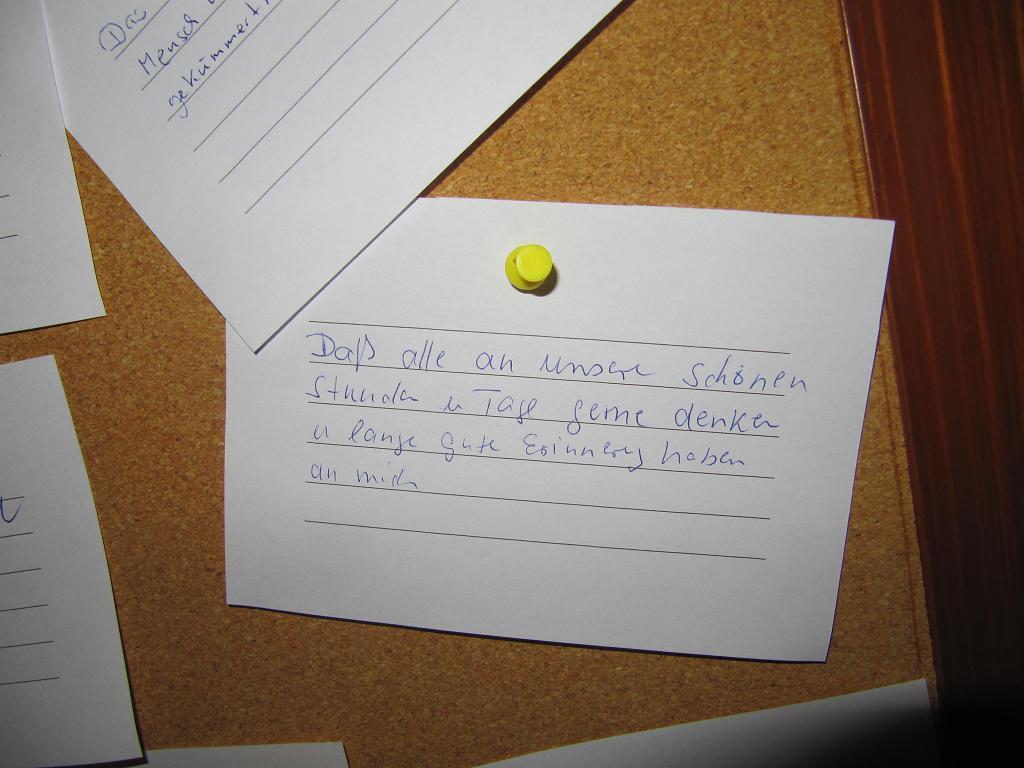 Das
Mensch
gekümmert,
Daß alle an unsere schönen
Stunden u Tage gerne denken
u lange gute Erinnerung haben
an mich